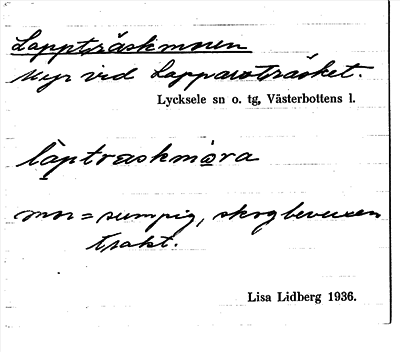 Lappträskmoren
Myr vid Lapparoträsket.
Lycksele sn o. tg, Västerbottens l.
làptraskmòra
mor = sumpig, skogbevuxen
trakt.
Lisa Lidberg 1936.